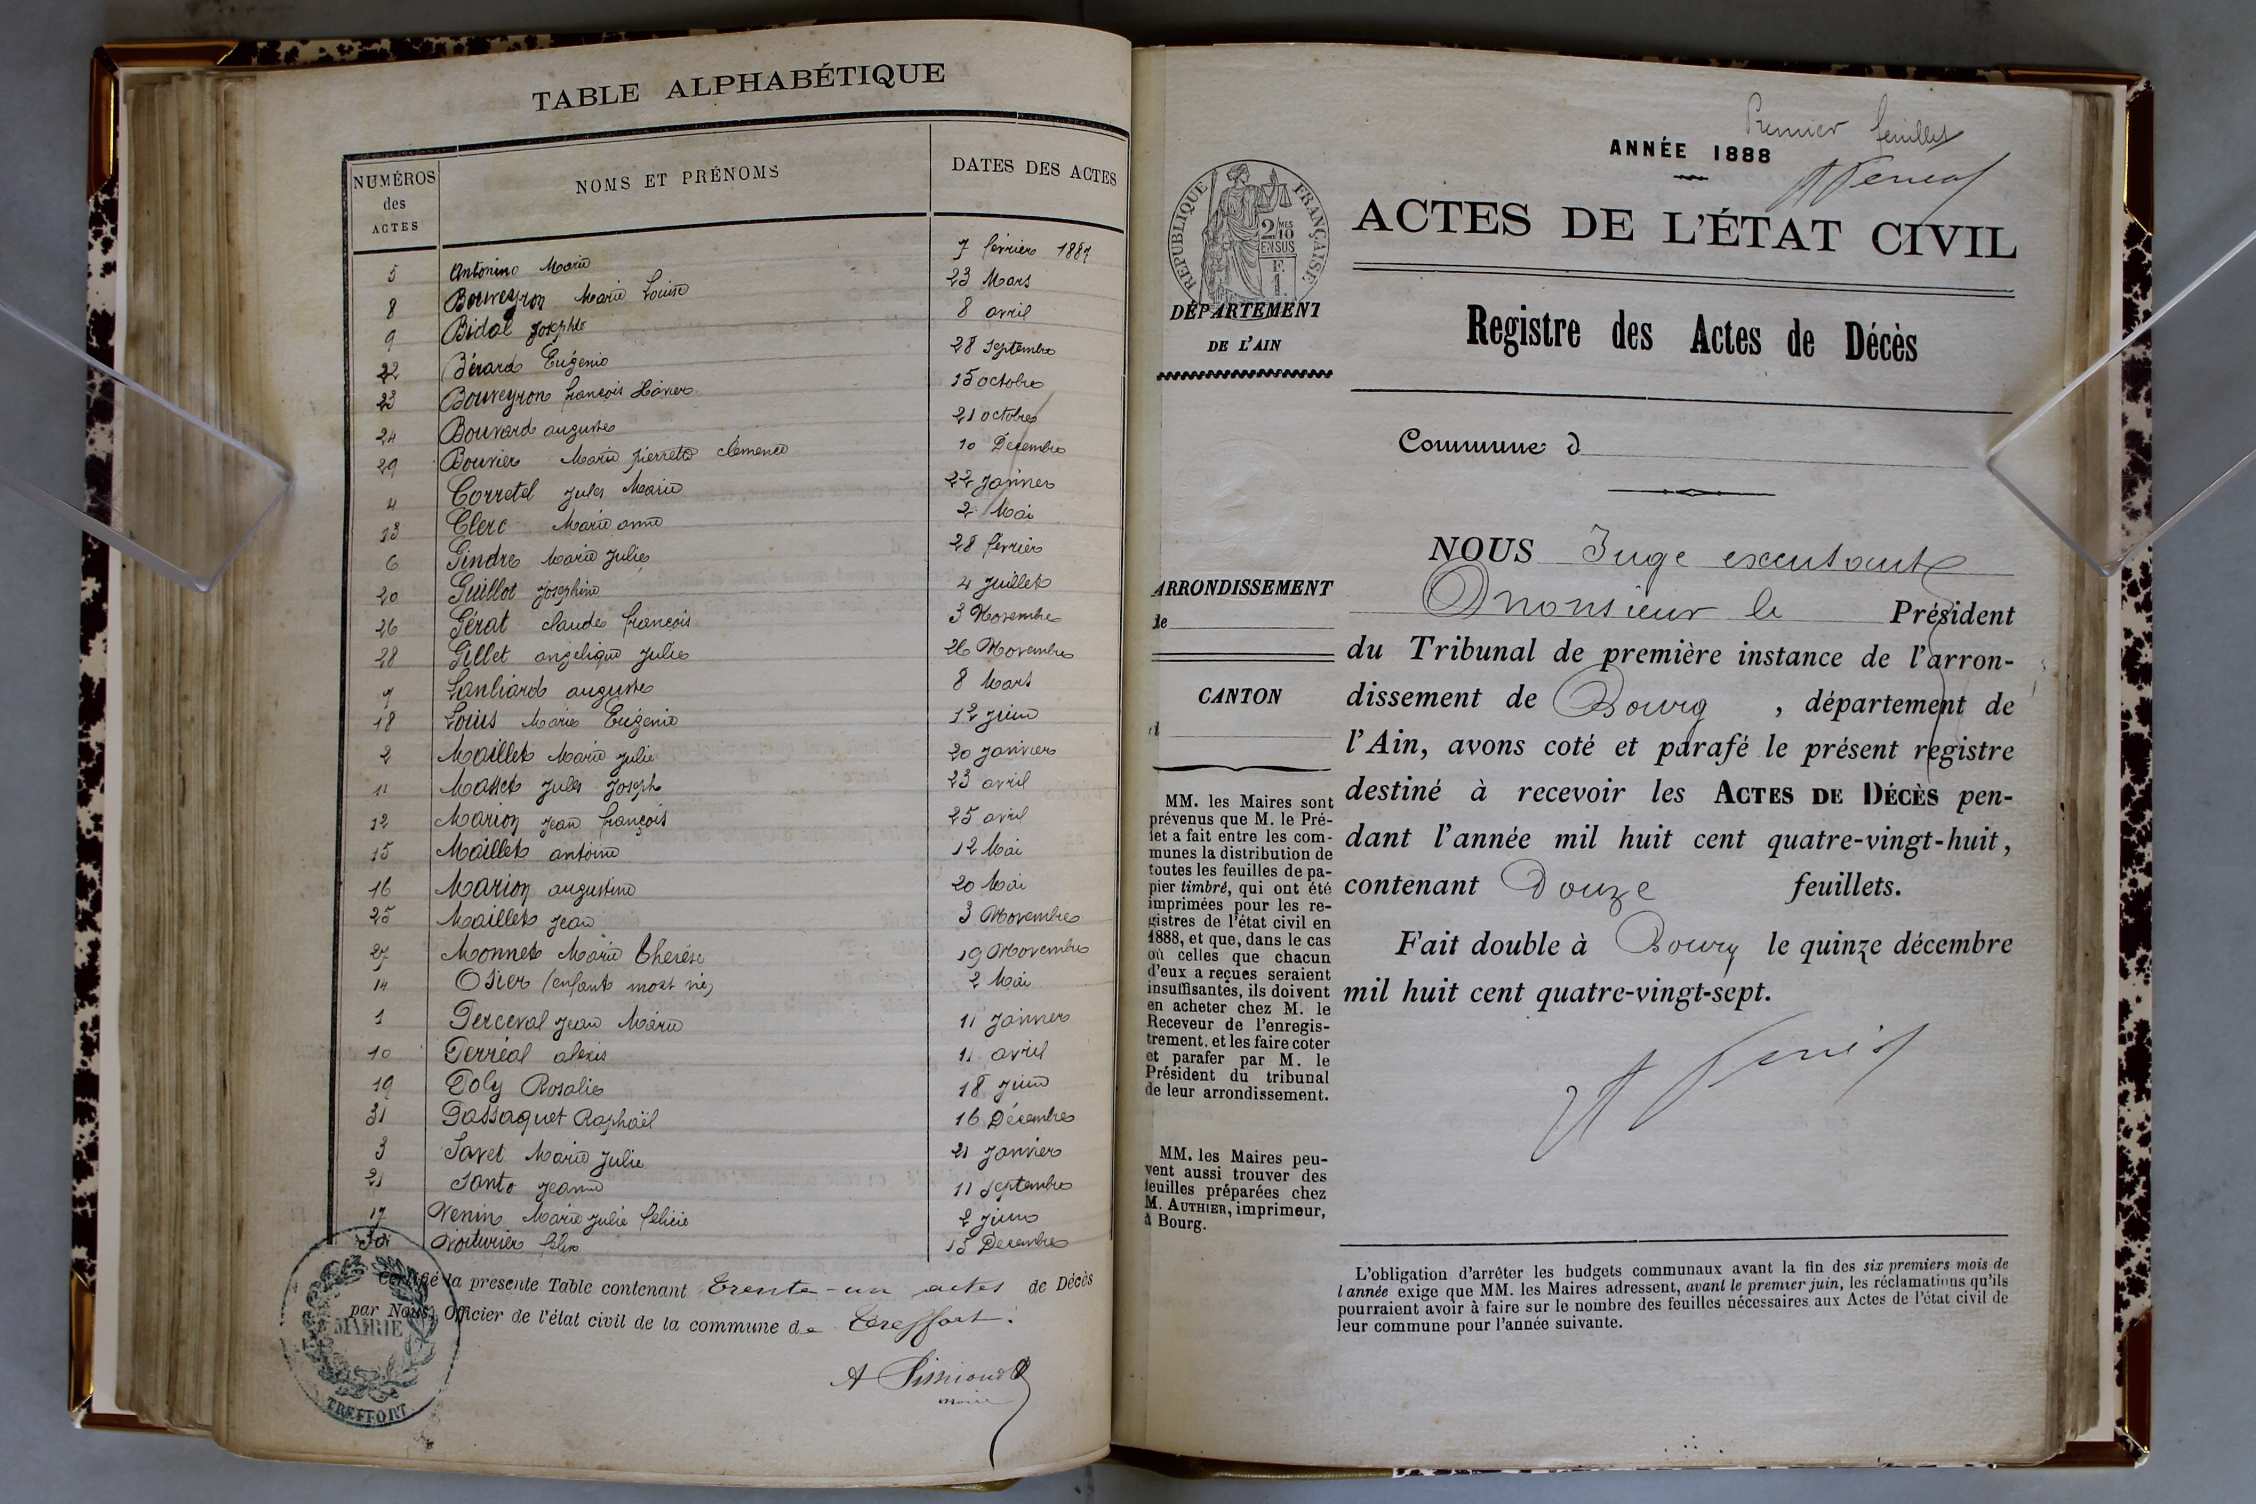 TABLE ALPHABÉTIQUE
NUMÉROS des ACTES
NOMS ET PRÉNOMS
DATES DES ACTES
5 Antonino Marie 7 février 1887
8 Bouveyron Marie Louise 23 Mars
9 Bidal Josephte 8 avril
22 Bérard Eugénie 28 Septembre
23 Bouveyron françois Xavier 15 octobre
24 Bouvard auguste 21 octobre
29 Bouvier Marie pierrette clémence 10 Décembre
4 Corretel Jules Marie 22 Janvier
13 Clerc Marie anne 2 Mai
6 Gindre Marie Julie 28 février
20 Guillot Josephine 4 Juillet
26 Gérat claude françois 3 Novembre
28 Gillet angelique Julie 26 Novembre
7 Lanliard auguste 8 Mars
18 Louis Marie Eugénie 12 Juin
2 Maillet Marie Julie 20 Janvier
11 Masset Jules Joseph 23 avril
12 Marion Jean françois 25 avril
15 Maillet antoine 12 Mai
16 Marion augustine 20 Mai
25 Maillet Jean 3 Novembre
27 Monnet Marie thérèse 19 Novembre
14 Osier (enfant mort né) 2 Mai
1 Perceval Jean Marie 11 Janvier
10 Perréal alexis 11 avril
19 Poly Rosalie 18 Juin
31 Passaquet Raphaël 16 Décembre
3 Savet Marie Julie 21 Janvier
21 Santo Jeanne 11 Septembre
17 Venin Marie Julie félicie 2 Juin
30 Voiturier félix 15 Décembre
Certifié la présente Table contenant trente-un actes de Décès
par Nous, Officier de l'état civil de la commune de Treffort.
MAIRIE
TREFFORT
A
maire
Premier feuillet
ANNÉE 1888
RÉPUBLIQUE FRANÇAISE
2/10
MES
EN SUS
F.
1.
ACTES DE L'ÉTAT CIVIL
DÉPARTEMENT
DE L'AIN
Registre des Actes de Décès
Commune d
ARRONDISSEMENT
de
CANTON
d
MM. les Maires sont
prévenus que M. le Pré-
fet a fait entre les com-
munes la distribution de
toutes les feuilles de pa-
pier timbré, qui ont été
imprimées pour les re-
gistres de l'état civil en
1888, et que, dans le cas
où celles que chacun
d'eux a reçues seraient
insuffisantes, ils doivent
en acheter chez M. le
Receveur de l'enregis-
trement, et les faire coter
et parafer par M. le
Président du tribunal
de leur arrondissement.
MM. les Maires peu-
vent aussi trouver des
feuilles préparées chez
M. AUTHIER, imprimeur,
à Bourg.
NOUS Juge
Monsieur le Président
du Tribunal de première instance de l'arron-
dissement de Bourg, département de
l'Ain, avons coté et parafé le présent registre
destiné à recevoir les ACTES DE DÉCÈS pen-
dant l'année mil huit cent quatre-vingt-huit,
contenant Douze feuillets.
Fait double à Bourg le quinze décembre
mil huit cent quatre-vingt-sept.
L'obligation d'arrêter les budgets communaux avant la fin des six premiers mois de
l'année exige que MM. les Maires adressent, avant le premier juin, les réclamations qu'ils
pourraient avoir à faire sur le nombre des feuilles nécessaires aux Actes de l'état civil de
leur commune pour l'année suivante.